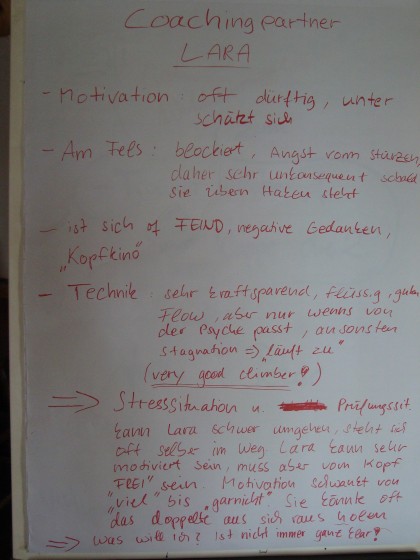 Coachingpartner
LARA
- Motivation : oft dürftig, unter
schätzt sich
- Am Fels : blockiert, Angst vorm stürzen,
daher sehr unkonsequent sobald
sie übern Haken steht
- ist sich oft FEIND, negative Gedanken,
"Kopfkino"
- Technik : sehr kraftsparend, flüssig, guter
Flow, aber nur wenns von
der Psyche passt, ansonsten
Stagnation => "läuft zu"
(very good climber!)
=> Stresssituation u. Prüfungssit.
kann Lara schwer umgehen, steht sich
oft selber im Weg. Lara kann sehr
motiviert sein, muss aber vom Kopf
"FREI" sein. Motivation schwankt von
"viel" bis "garnicht". Sie könnte oft
das doppelte aus sich raus holen
=> was will ich? ist nicht immer ganz klar!